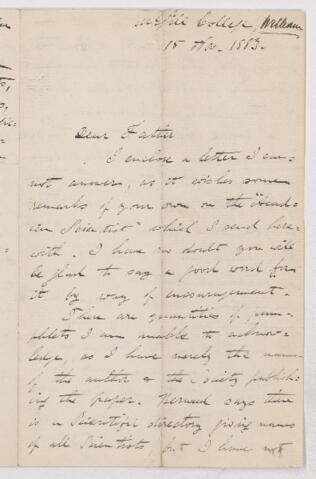 McGill College, William
15 Nov. 1883.
Dear Father
I enclose a letter I can-
not answer, as it wishes some
remarks of your own on the
which I send here-
with. I have no doubt you will
be glad to say a good word for
it by way of encouragement.
There are quantities of pam-
phlets I am unable to acknow-
ledge, as I have merely the name
of the author & the Society publish-
ing the paper. says there
is a Scientific directory giving names
of all Scientists, but I have not